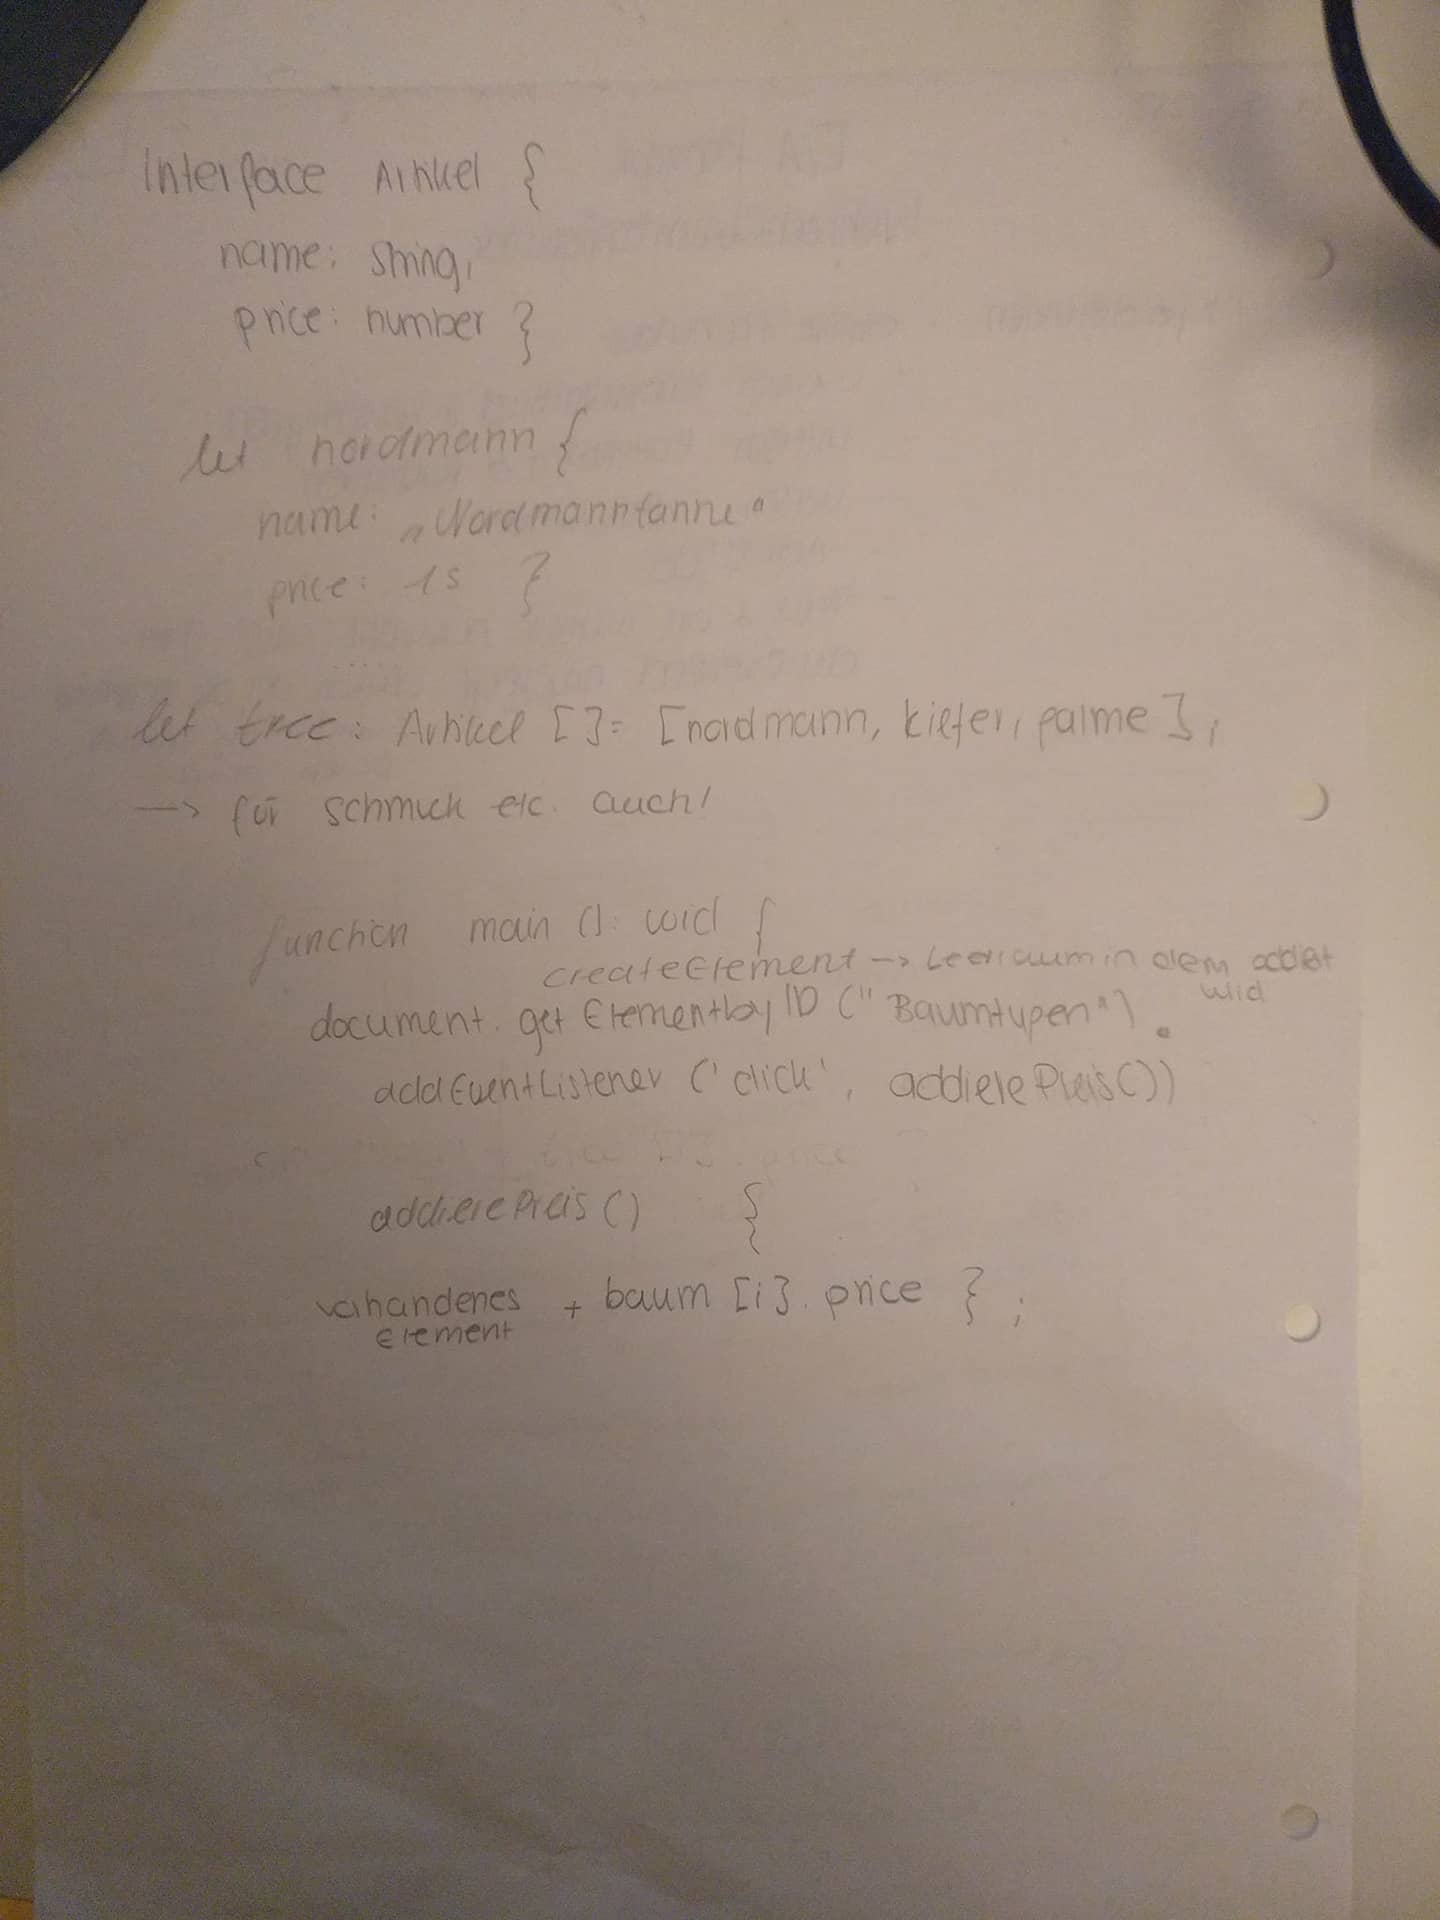 Interface Artikel {
name: string,
price: number }
let nordmann {
name: „Nordmanntanne"
price: 15 }
let tree: Artikel []= [nordmann, kiefer, palme ];
—> für schmuck etc. auch!
function main (): void {
createElement —> Leerraum in dem addiert
wird
document. get ElementbyID ("Baumtypen").
addEventListener ('click', addierePreis())
addierePreis () {
vorhandenes + baum [i]. price } ;
Element